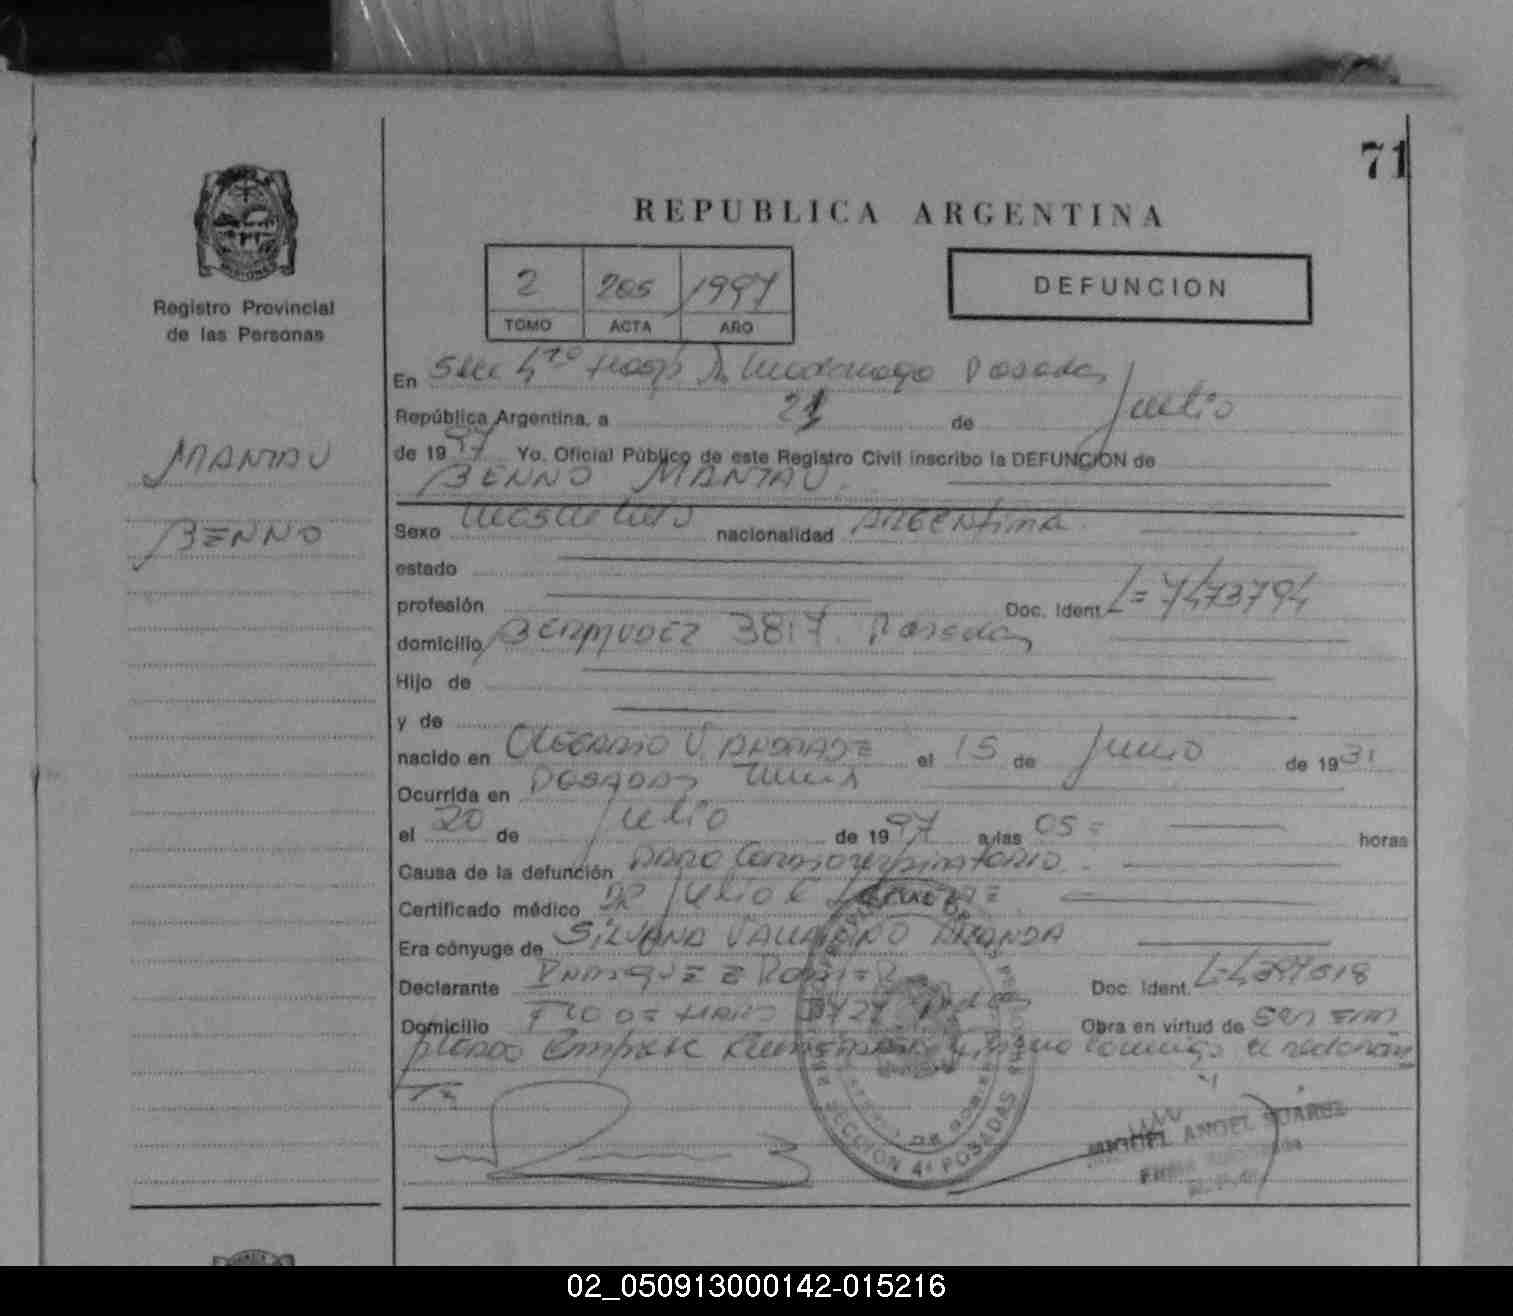 71
REPUBLICA ARGENTINA
2 205 1997
TOMO ACTA AÑO
DEFUNCION
Registro Provincial
de las Personas
MANTAU
BENNO
En Secc 4ta Hosp. Dr. Madariaga Posadas
República Argentina, a 21 de Julio
de 1997 Yo, Oficial Público de este Registro Civil inscribo la DEFUNCION de
BENNO MANTAU.
Sexo masculino nacionalidad ARGENTINA
estado
profesión Doc. Ident. L=7473794
domicilio BERMUDEZ 3817. Posadas
Hijo de
y de
nacido en OLEGARIO V. ANDRADE el 15 de Junio de 1931
Ocurrida en POSADAS
el 20 de Julio de 1997 a las 05= horas
Causa de la defunción PARO Cardiorespiratorio.
Certificado médico DR Julio C
Era cónyuge de SILVANA AMANDA
Declarante Doc. Ident.
Domicilio Obra en virtud de ser em
pleado Empresa
SECCION 4ª POSADAS
MIGUEL ANGEL SUAREZ
02_050913000142-015216